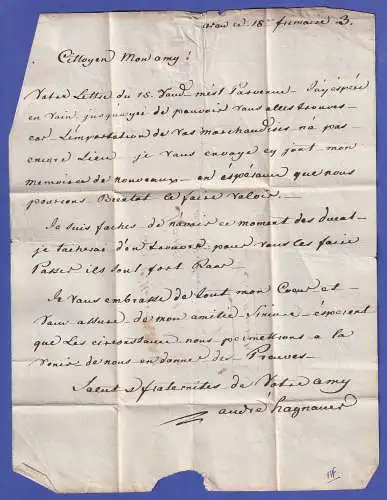 arau ce 18 frimaire 3.
Cittoyen Mon amy!
Votre Lettre du 15. Vand. m'est Parvenue. J'ay éspéré
en Vain jusqu'aycy de pouvoir Vous alles trouver
car L'Exportation de Vos Marchandises n'a pas
encore Lieu je Vous envoye cy joint mon
Memoire de nouveaux en espérance que nous
pourrons Bientot le faire Valoir.
Je suis faches de navoir ce moment des ducats
je tacherai d'en trouver pour Vous les faire
Passer ils sont fort Raar
Je Vous embrasse de tout mon Coeur et
Vous assure de mon amitie Sincere esperent
que Les Circonstance nous permettrons a la
Venir de nous en donner de Preuves
Salut & fraternites de Votre amy
andré hagnauer